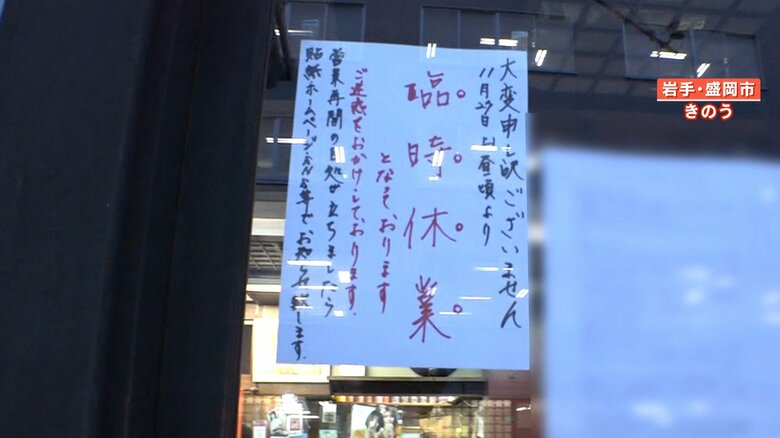 大変申し訳ございません
11月27日お昼頃より
臨時休業
となっております
ご迷惑をおかけしております.
営業再開の目処が立ちましたら
貼紙ホームページ・SNS等でお知らせ致します.
岩手・盛岡市
きのう